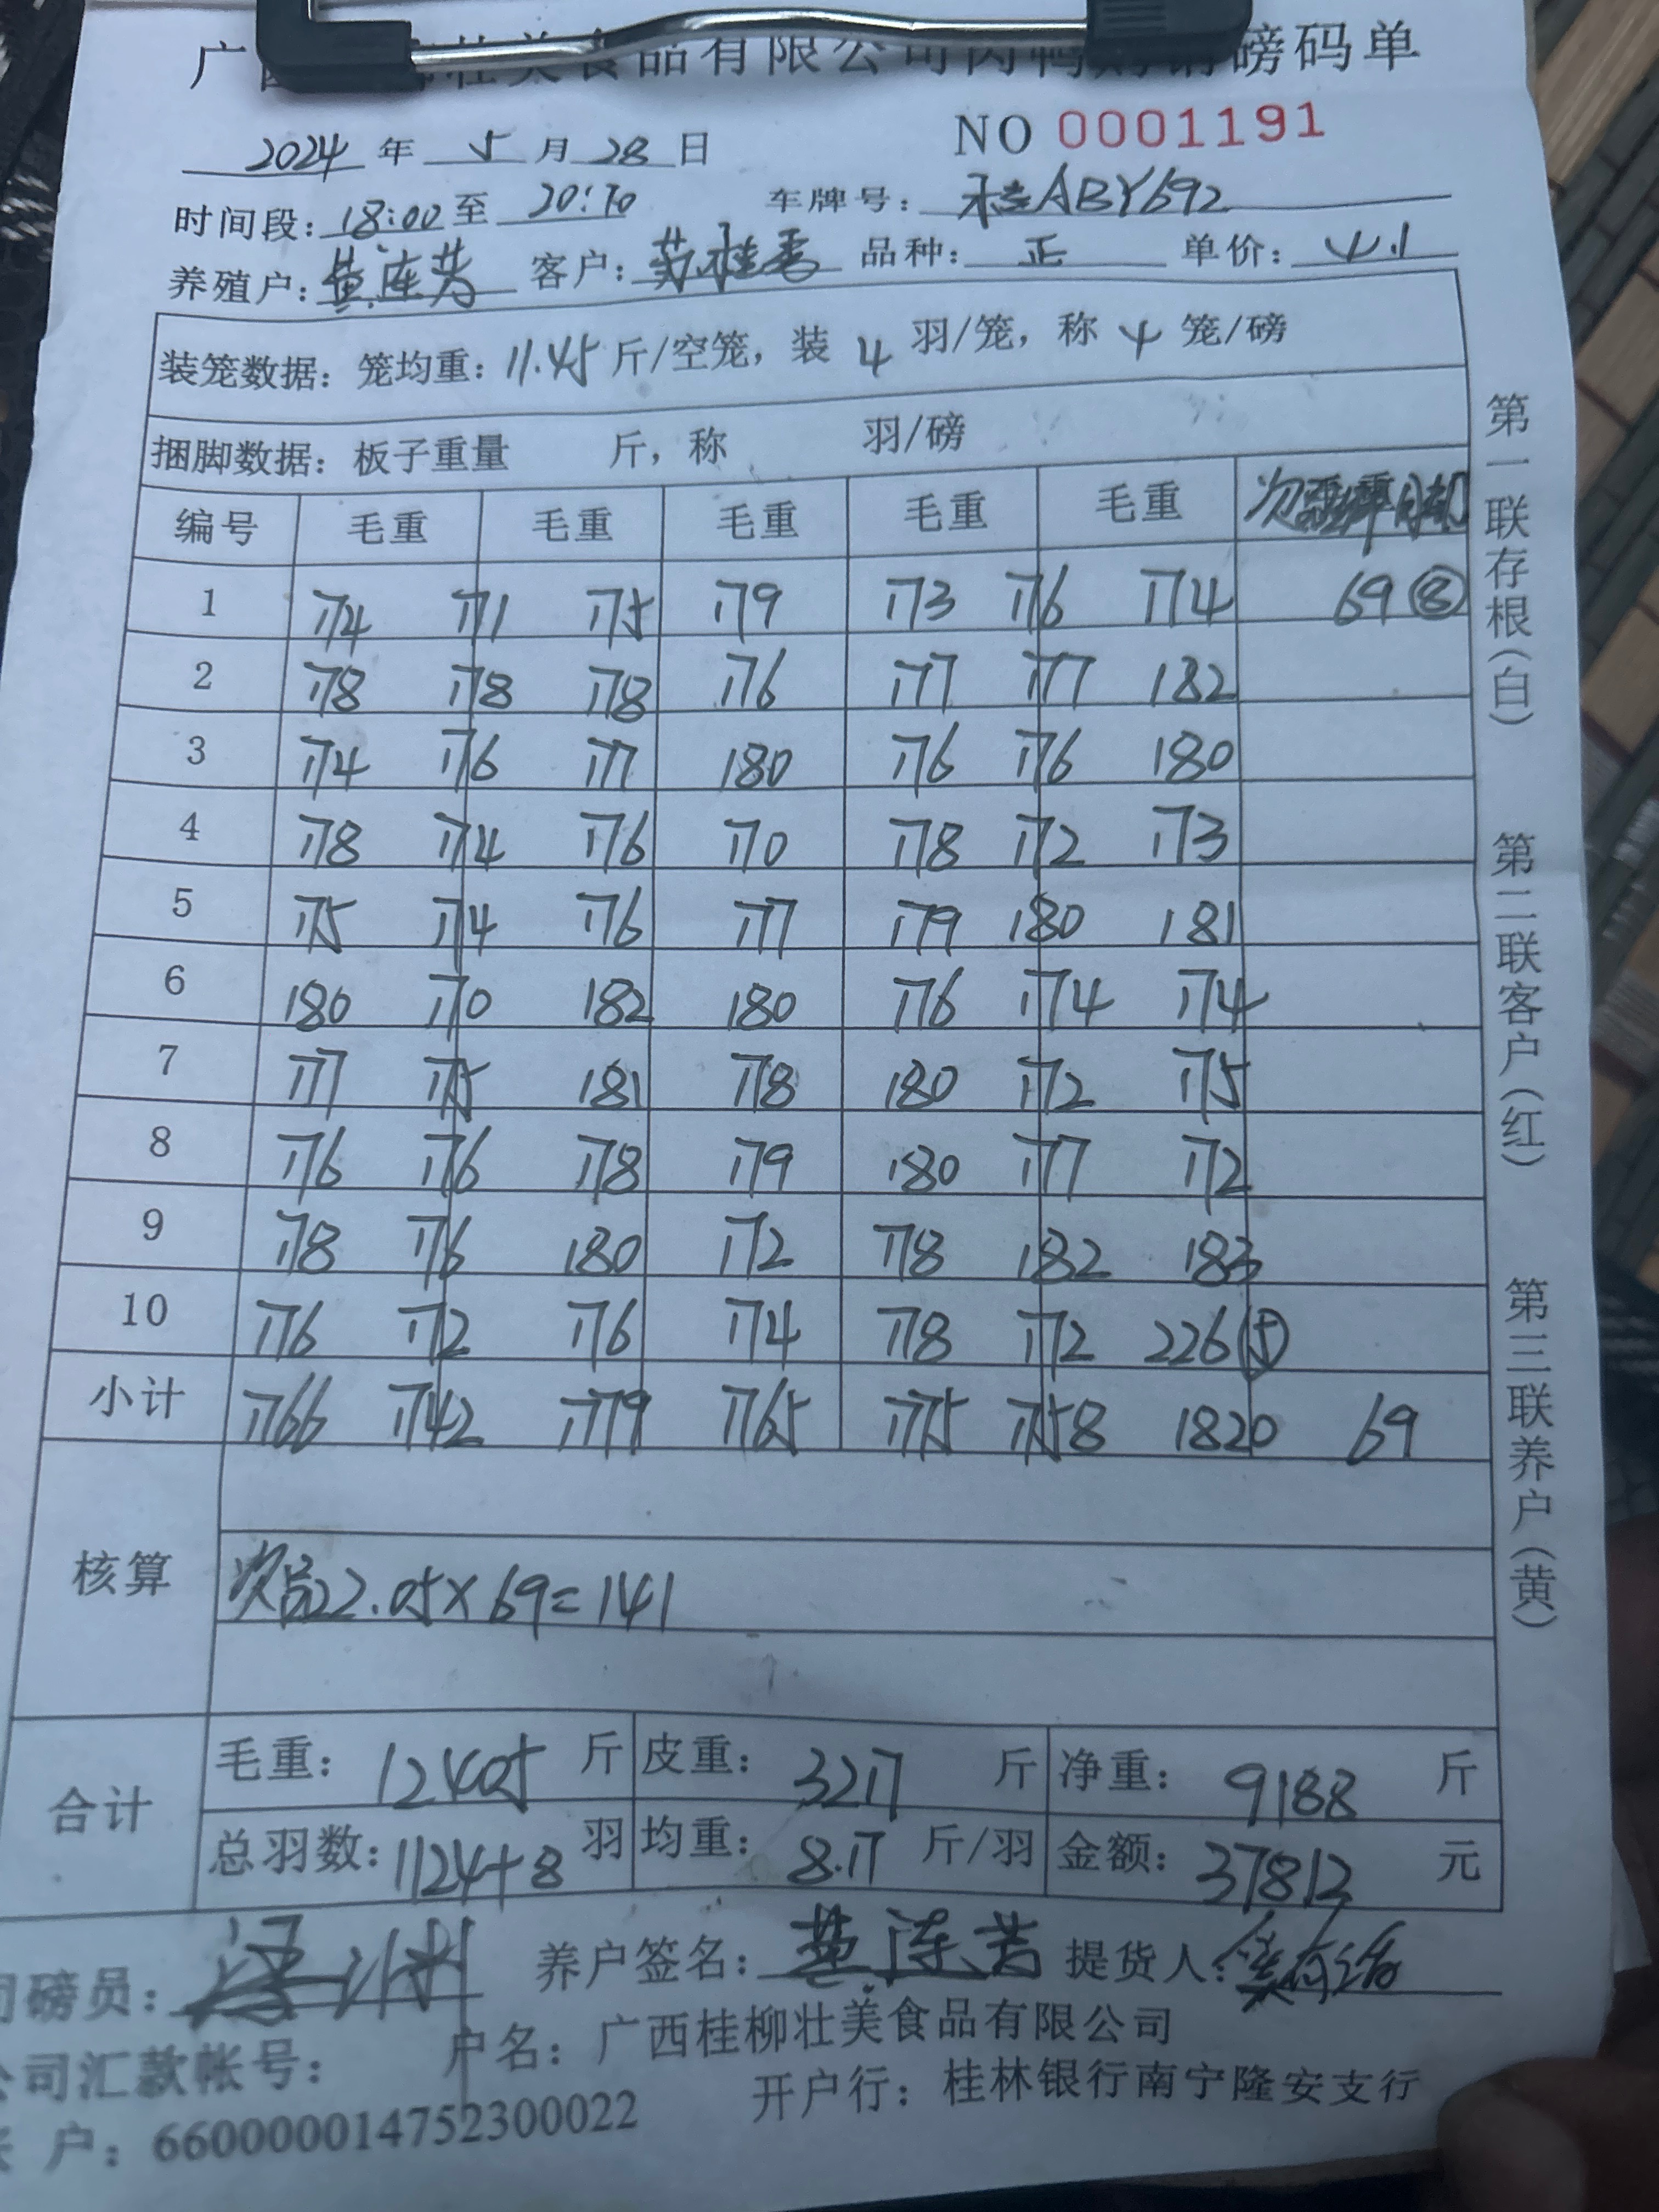 广西 壮美食品有限公司肉鸭 磅码单
NO 0001191
2024 年 5 月 28 日
时间段: 18:00 至 20:10 车牌号: 桂ABY692
养殖户: 黄连芳 客户: 苏桂香 品种: 正 单价: 4.1
装笼数据: 笼均重: 11.45 斤/空笼, 装 4 羽/笼, 称 4 笼/磅
捆脚数据: 板子重量 斤, 称 羽/磅
编号 毛重 毛重 毛重 毛重 毛重 次
1 174 171 175 179 173 176 174 69 ⑧
2 178 178 178 176 177 177 182
3 174 176 177 180 176 176 180
4 178 174 176 170 178 172 173
5 175 174 176 177 179 180 181
6 180 170 182 180 176 174 174
7 177 175 181 178 180 172 175
8 176 176 178 179 180 177 172
9 178 176 180 172 178 182 183
10 176 172 176 174 178 172 226 ⑤
小计 1766 1742 1779 1765 1775 1758 1820 69
核算
次品22.05×69=141
合计
毛重: 12405 斤 皮重: 3217 斤 净重: 9188 斤
总羽数: 1124+8 羽 均重: 8.17 斤/羽 金额: 37813 元
司磅员: 养户签名: 黄连芳 提货人:
公司汇款帐号: 户名: 广西桂柳壮美食品有限公司
户: 660000014752300022 开户行: 桂林银行南宁隆安支行
第一联存根(白)
第二联客户(红)
第三联养户(黄)